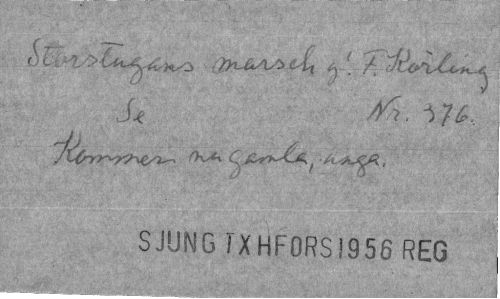 Storstugans marsch af F. Körling
Se Nr. 376.
Kommer nu gamla, unga.
SJUNG TXHFORS1956 REG